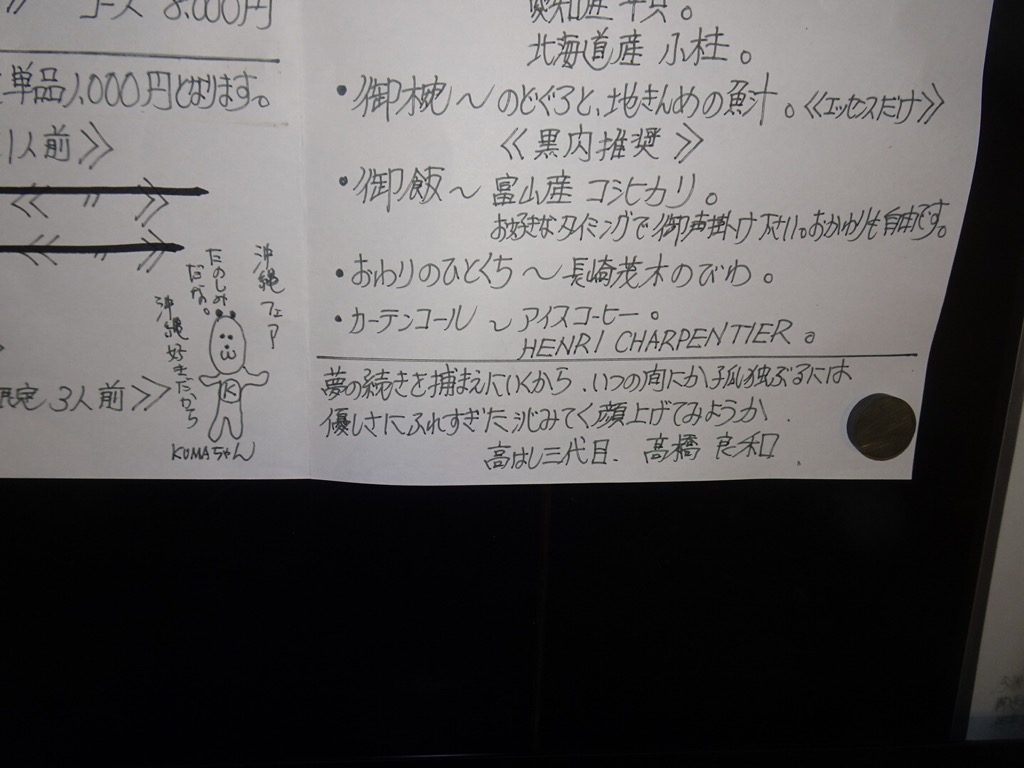 コース 8.000円
単品1,000円となります。
1人前》
《 〃 》
《 〃 》
沖縄フェア
たのしみ
だな。
沖縄好きだから
限定 3人前》
KUMAちゃん
愛知産 平貝。
北海道産 小柱。
・御椀～のどぐろと、地きんめの魚汁。《エッセンスだけ》
《黒内推奨》
・御飯～富山産 コシヒカリ。
お好きなタイミングで御声掛け下さい。おかわりも自由です。
・おわりのひとくち～長崎茂木のびわ。
・カーテンコール ～アイスコーヒー。
HENRI CHARPENTIER。
夢の続きを捕まえにいくから、いつの間にか孤独ぶるには
優しさにふれすぎた、沁みてく顔上げてみようか.
高はし三代目. 高橋 良和.